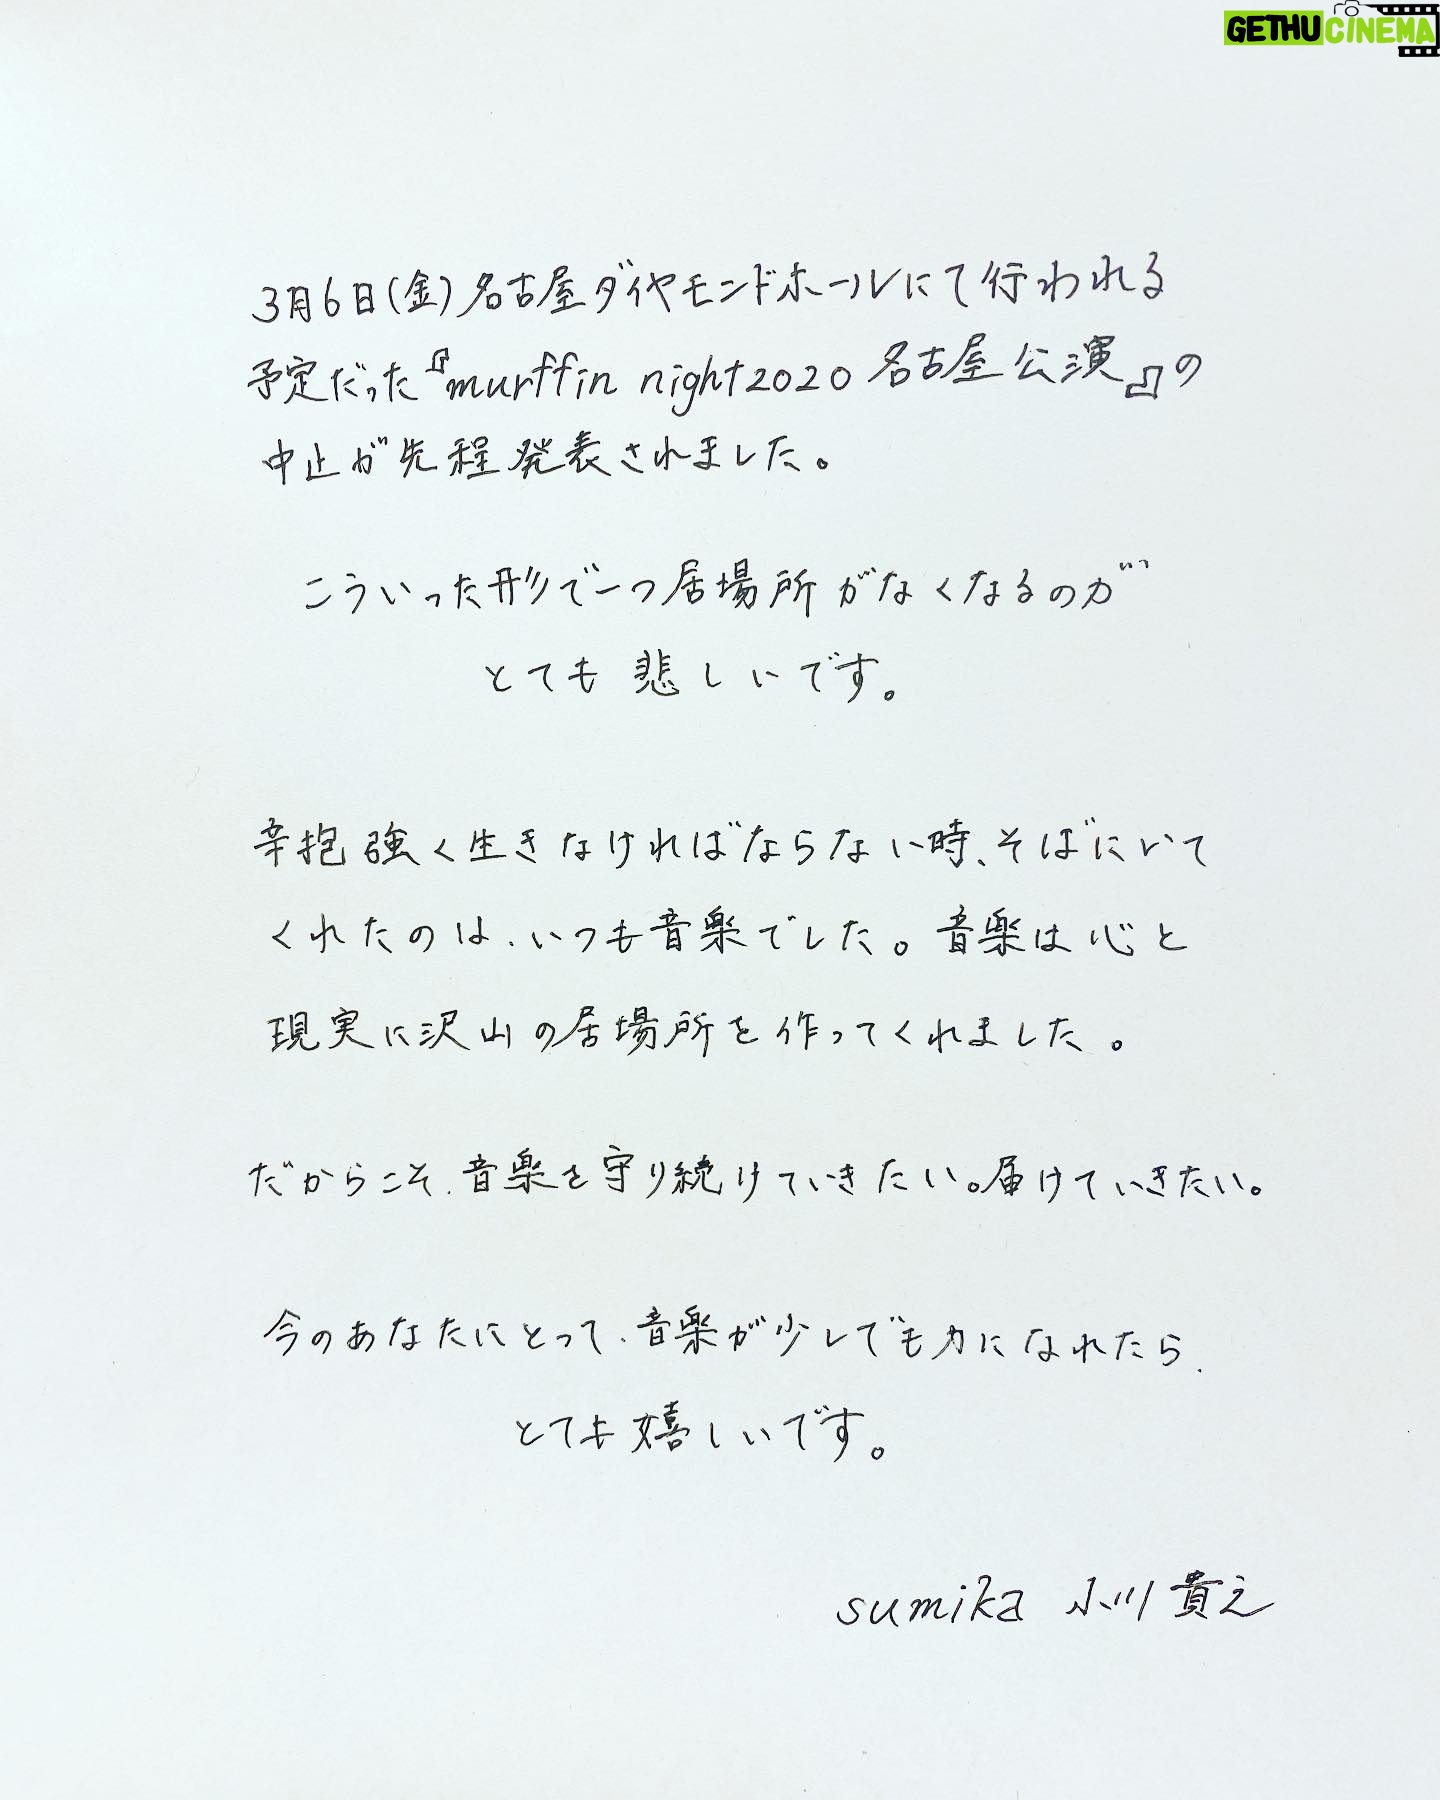 GETHUCINEMA
3月6日(金)名古屋ダイヤモンドホールにて行われる
予定だった『murffin night2020 名古屋公演』の
中止が先程発表されました。
こういった形で一つ居場所がなくなるのが
とても悲しいです。
辛抱強く生きなければならない時、そばにいて
くれたのは、いつも音楽でした。音楽は心と
現実に沢山の居場所を作ってくれました。
だからこそ、音楽を守り続けていきたい。届けていきたい。
今のあなたにとって、音楽が少しでも力になれたら、
とても嬉しいです。
sumika 小川貴之